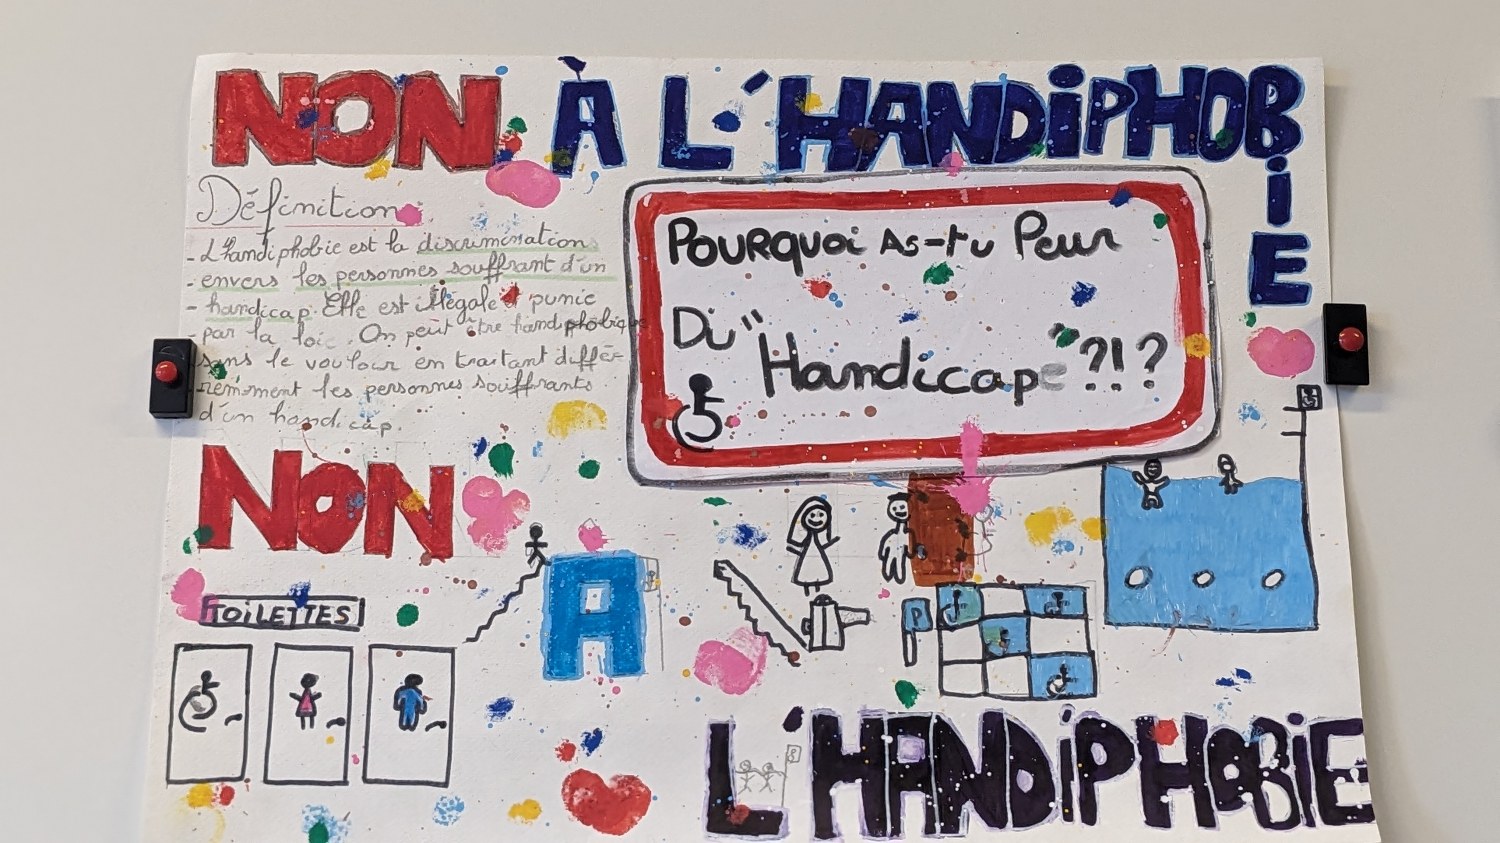 NON À L'HANDIPHOBIE
Définition
- L'handiphobie est la discrimination
- envers les personnes souffrant d'un
- handicap. Elle est illégale punie
- par la loi. On peut être handiphobique
sans le vouloir en traitant diffé-
-remment les personnes souffrants
d'un handicap.
POURQUOI AS-tu Peur
Du "Handicap" ?!?
NON
À
TOILETTES
P
L'HANDIPHOBIE